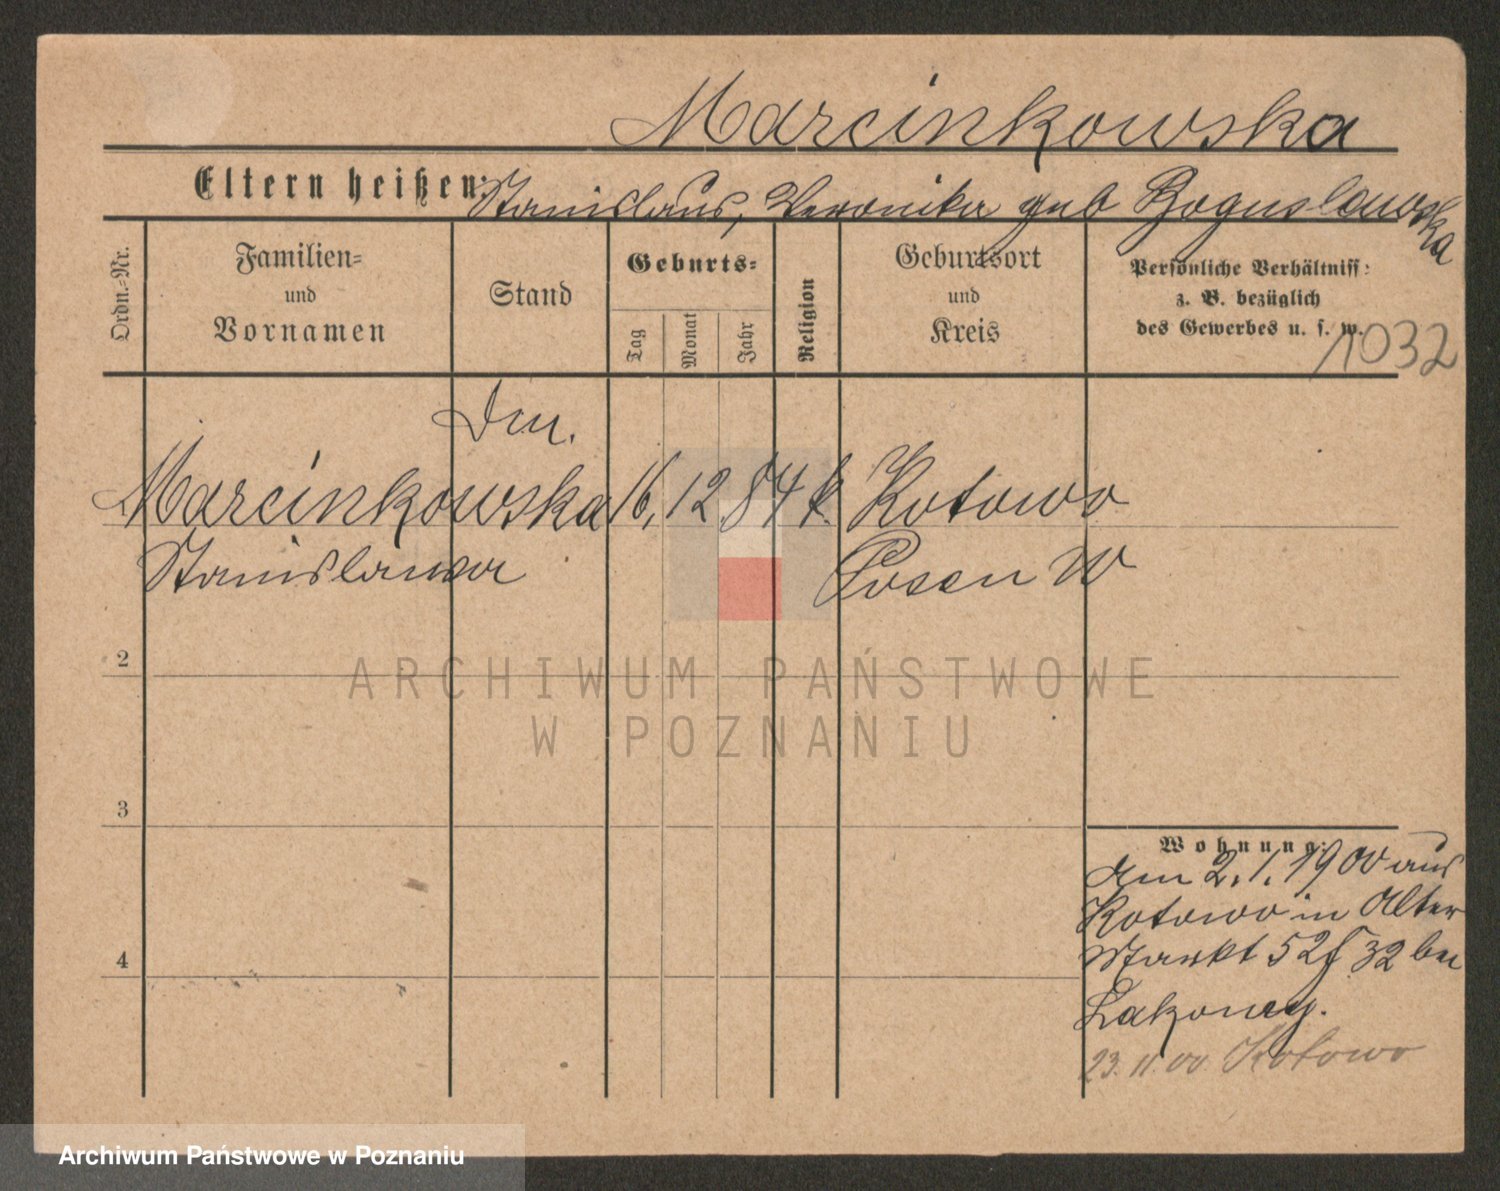 Marcinkowska
Eltern heißen: Stanislaus, Veronika geb Boguslawska
Ordn.-Nr.
Familien-
und
Vornamen
Stand
Geburts-
Tag
Monat
Jahr
Religion
Geburtsort
und
Kreis
Persönliche Verhältniss:
z. B. bezüglich
des Gewerbes u. s. w.
1032
Marcinkowska 16. 12 84 k. Kotowo
Stanislawa Posen W
2
3
4
Wohnung:
Am 2. 1. 1900 aus
Kotowo in Alter
Markt 52 32 bei
23. 11. 00 Kotowo
ARCHIWUM PAŃSTWOWE
W POZNANIU
Archiwum Państwowe w Poznaniu